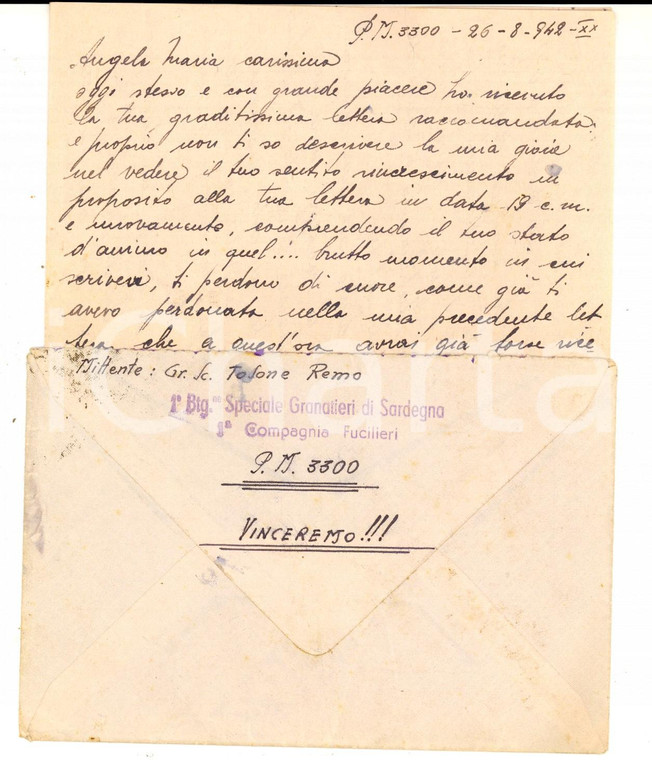 P.M. 3300 - 26 - 8 - 942 - XX
Angela Maria carissima
oggi stesso e con grande piacere ho ricevuto
la tua graditissima lettera raccomandata,
e proprio non ti so descrivere la mia gioia
nel vedere il tuo sentito rincrescimento in
proposito alla tua lettera in data 19 c.m.
e nuovamente, comprendendo il tuo stato
d'animo in quel .... brutto momento in cui
scrivevi, ti perdono di cuore, come già ti
avevo perdonata nella mia precedente let
tera che a quest'ora avrai già forse rice
Mittente: Gr. Sc. Tosone Remo
1° Btg.ne Speciale Granatieri di Sardegna
1ª Compagnia Fucilieri
P.M. 3300
VINCEREMO!!!
iCharta